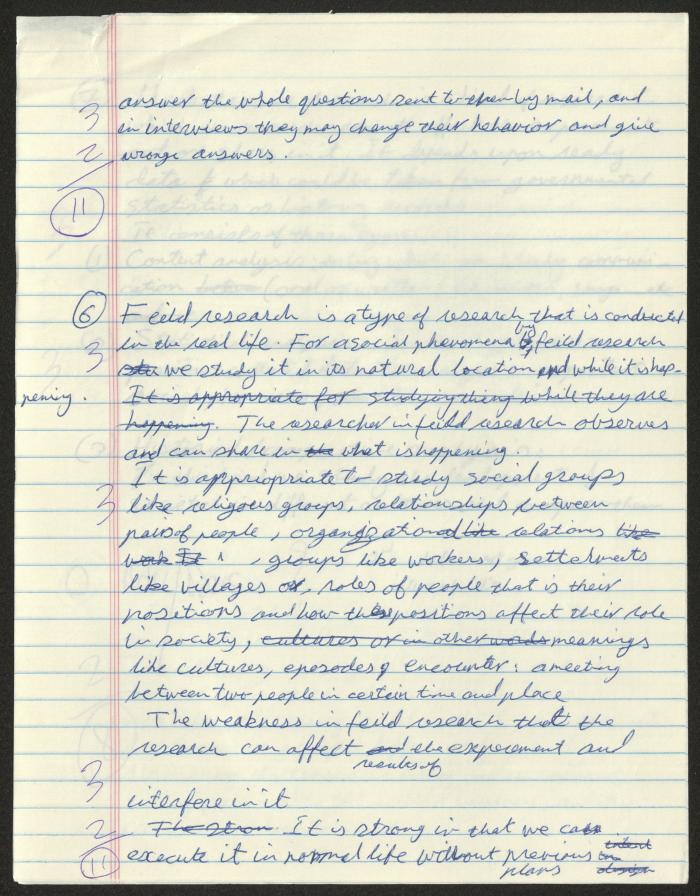 answer the whole questions sent to them by mail, and
3
in interviews they may change their behavior and give
2
wronge answers.
11
6 Feild research is a type of research that is conducted
in the real life. For a social phenomena by feild research
3
we study it in its natural location and while it is hap-
pening. It is appropriate for studying thing while they are
happening. The researcher in feild research observes
and can share in the what is happening.
It is appropriate to study social groups
3
like religous groups, relationships between
pairs of people, organizational like relations like
work , groups like workers, settelments
like villages or, roles of people that is their
positions and how thes positions affect their role
in society, cultures or in other words meanings
like cultures, epesodes of encounter: a meeting
between two people in certain time and place
The weakness in feild research that the
research can affect and the experement and
results of
3
interfere in it
2
The stron It is strong in that we can
execute it in normal life without previous intent
11
plans design